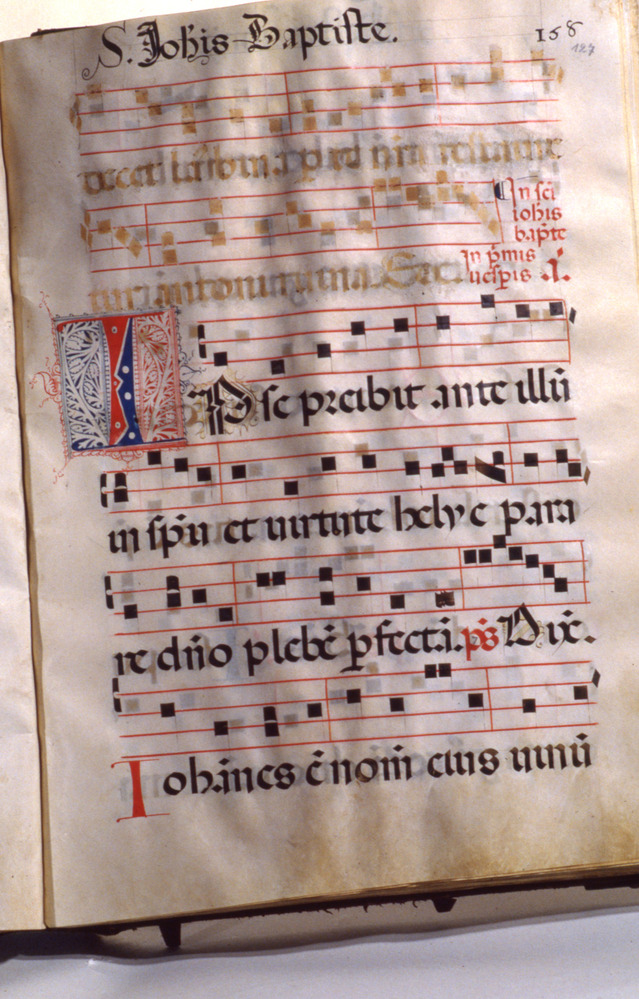 S. Johis Baptiste.
158
127
In sci
iohis
bapte
in pmis
uespis .A.
Ipse preibit ante illū
in spū et uirtute helye para
re dn̄o plebē pfectā. ps Dixͥ.
Iohānes ē nom̄ eius uinū